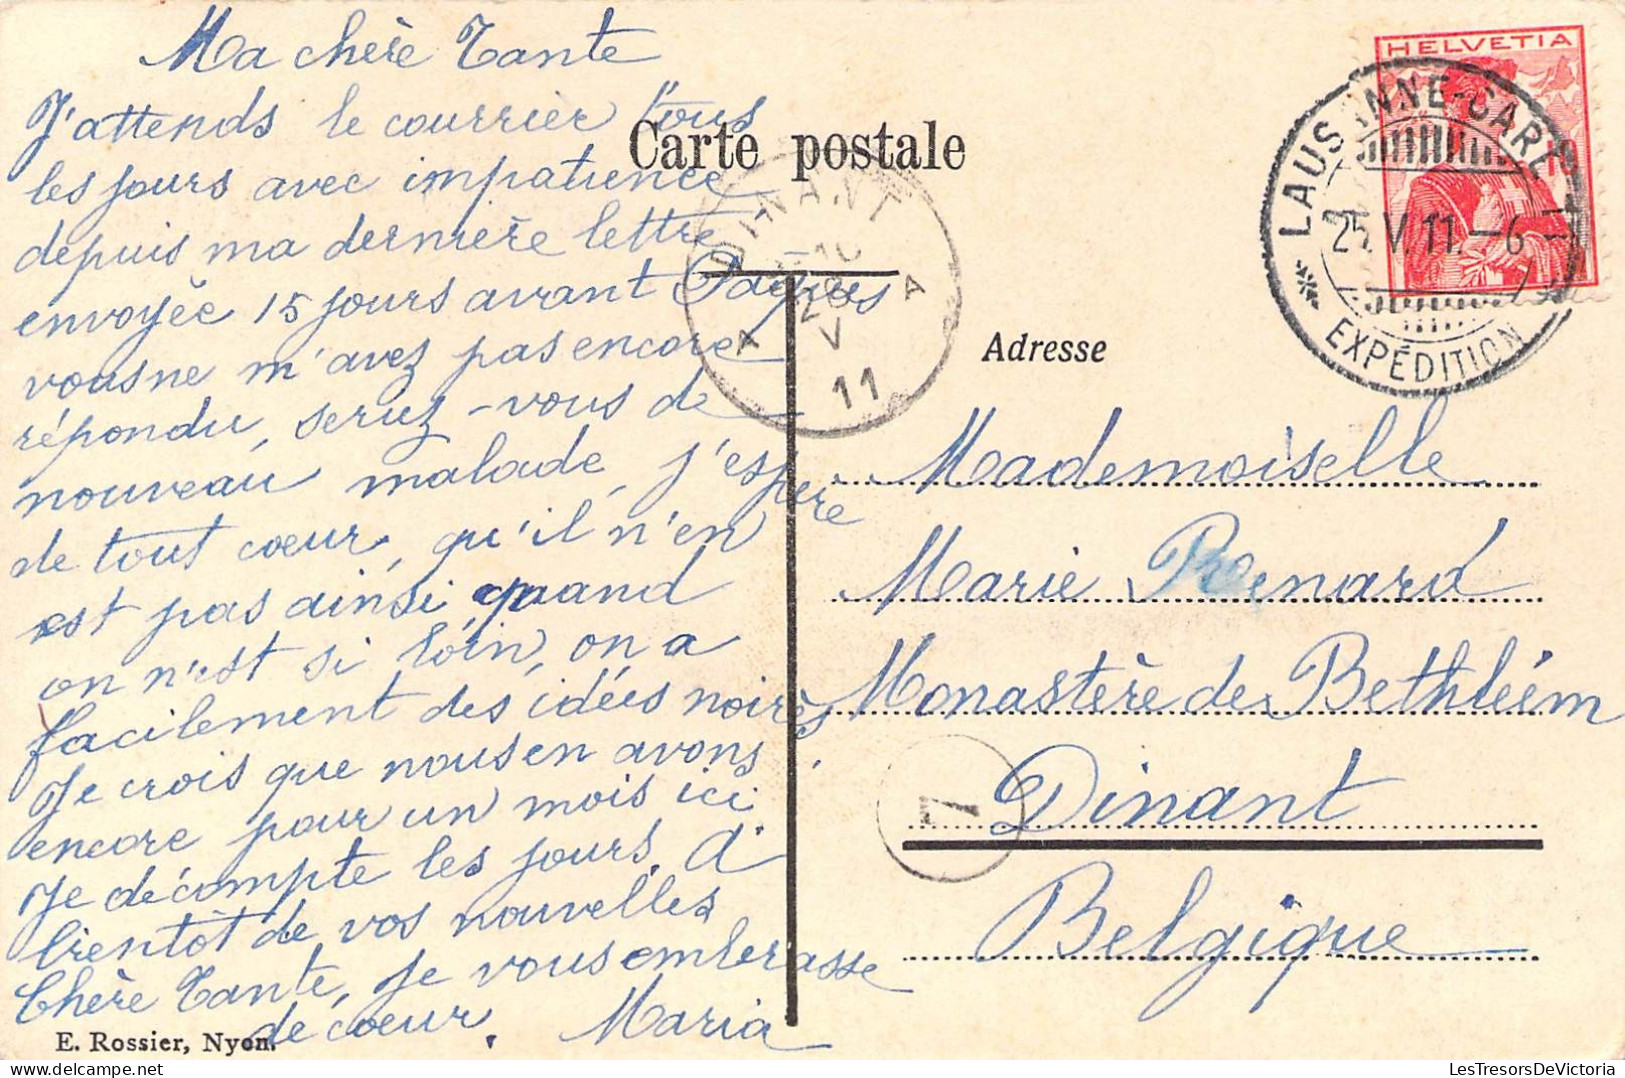 Ma chère Tante
J'attends le courrier tous
les jours avec impatience
depuis ma dernière lettre
envoyée 15 jours avant Pâques
vous ne m'avez pas encore
répondu, seriez-vous de
nouveau malade, j'espère
de tout cœur, qu'il n'en
est pas ainsi quand
on n'est si loin, on a
facilement des idées noires,
Je crois que nous en avons
encore pour un mois ici
Je décompte les jours. A
bientôt de vos nouvelles
Chère Tante, je vous emberasse
de cœur. Maria
E. Rossier, Nyon.
Carte postale
DINANT
26
V
11
A A
HELVETIA
LAUSANNE-GARE
25.V.11.-6-
EXPÉDITION
Adresse
Mademoiselle
Marie Renard
Monastère de Bethléem
Dinant
7
Belgique
LesTresorsDeVictoria